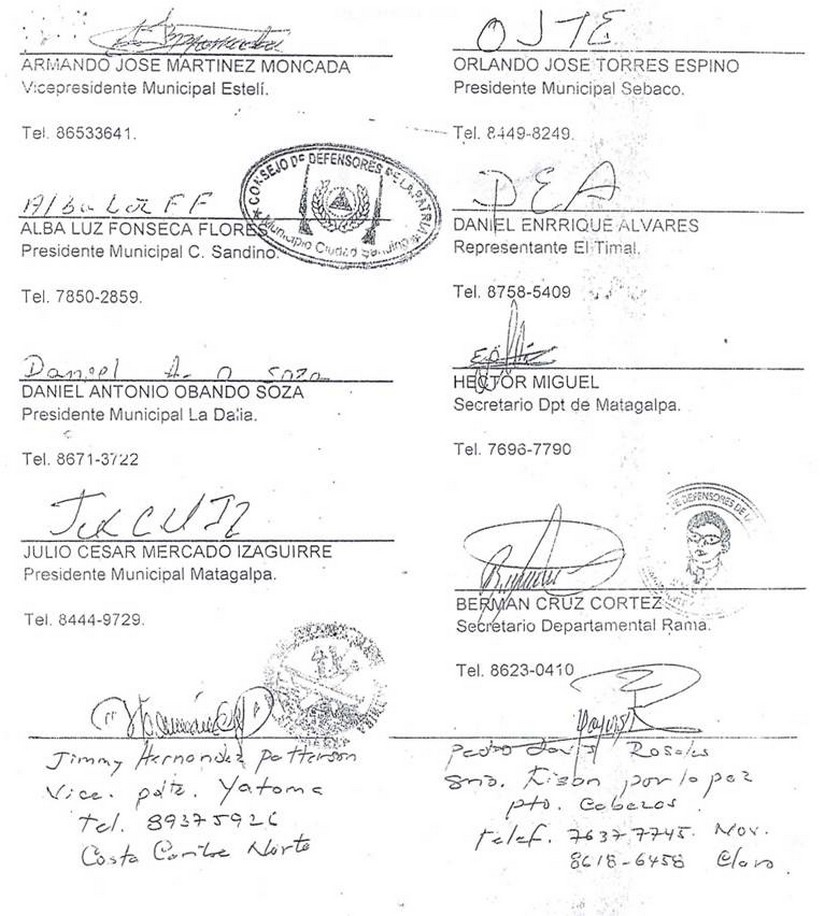 ARMANDO JOSE MARTINEZ MONCADA
Vicepresidente Municipal Estelí.
Tel. 86533641.
OJTE
ORLANDO JOSE TORRES ESPINO
Presidente Municipal Sebaco.
Tel. 8449-8249.
Alba Luz F F
ALBA LUZ FONSECA FLORES
Presidente Municipal C. Sandino.
Tel. 7850-2859.
CONSEJO DE DEFENSORES DE LA PATRIA
Municipio Ciudad Sandino
DEA
DANIEL ENRRIQUE ALVARES
Representante El Timal.
Tel. 8758-5409
Daniel A. O Soza
DANIEL ANTONIO OBANDO SOZA
Presidente Municipal La Dalia.
Tel. 8671-3722
HECTOR MIGUEL
Secretario Dpt de Matagalpa.
Tel. 7696-7790
JULIO CESAR MERCADO IZAGUIRRE
Presidente Municipal Matagalpa.
Tel. 8444-9729.
DE DEFENSORES DE LA
BERMAN CRUZ CORTEZ
Secretario Departamental Rama.
Tel. 8623-0410
Jimmy Hernandez Patterson
Vice. pdte. Yatama
tel. 89375926
Costa Caribe Norte
Pedro Davis Rosales
por la paz
pto. Cabezas
telef. 7637-7745. Mov.
8618-6458 Claro.